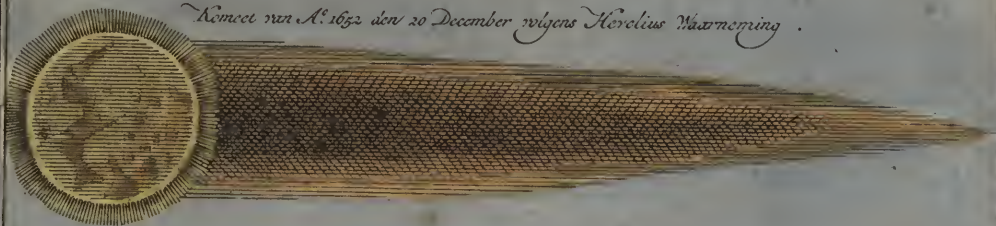 Komeet van A.º 1652 den 20 December volgens Hevelius Waarneming.